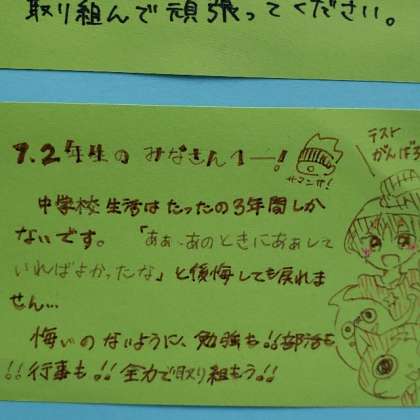 取り組んで頑張ってください。
1.2年生のみなさんへー!
テスト
がんばろ
中学校生活はたったの3年間しか
ないです。「あぁ、あのときにあぁして
いればよかったな」と後悔しても戻れま
せん…
悔いのないように、勉強も!!部活も
!!行事も!!全力で取り組もう!!